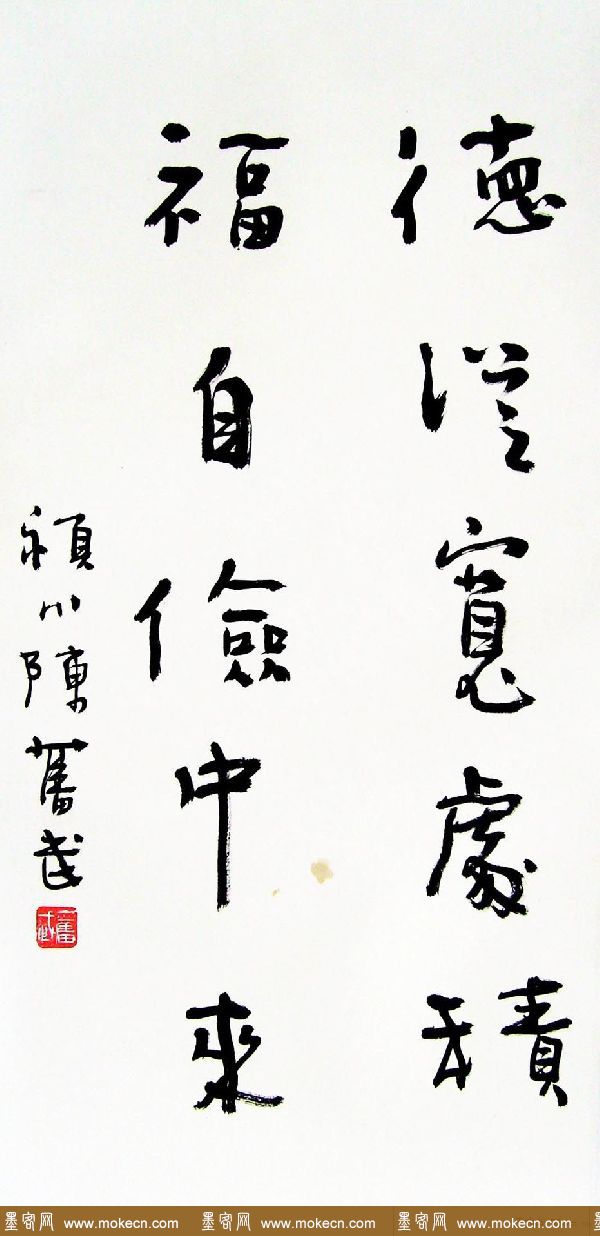 德從寬處積
福自儉中來
潁川陳舊武
舊武
墨客网 www.mokecn.com 墨客网 www.mokecn.com 墨客网 www.mokecn.com